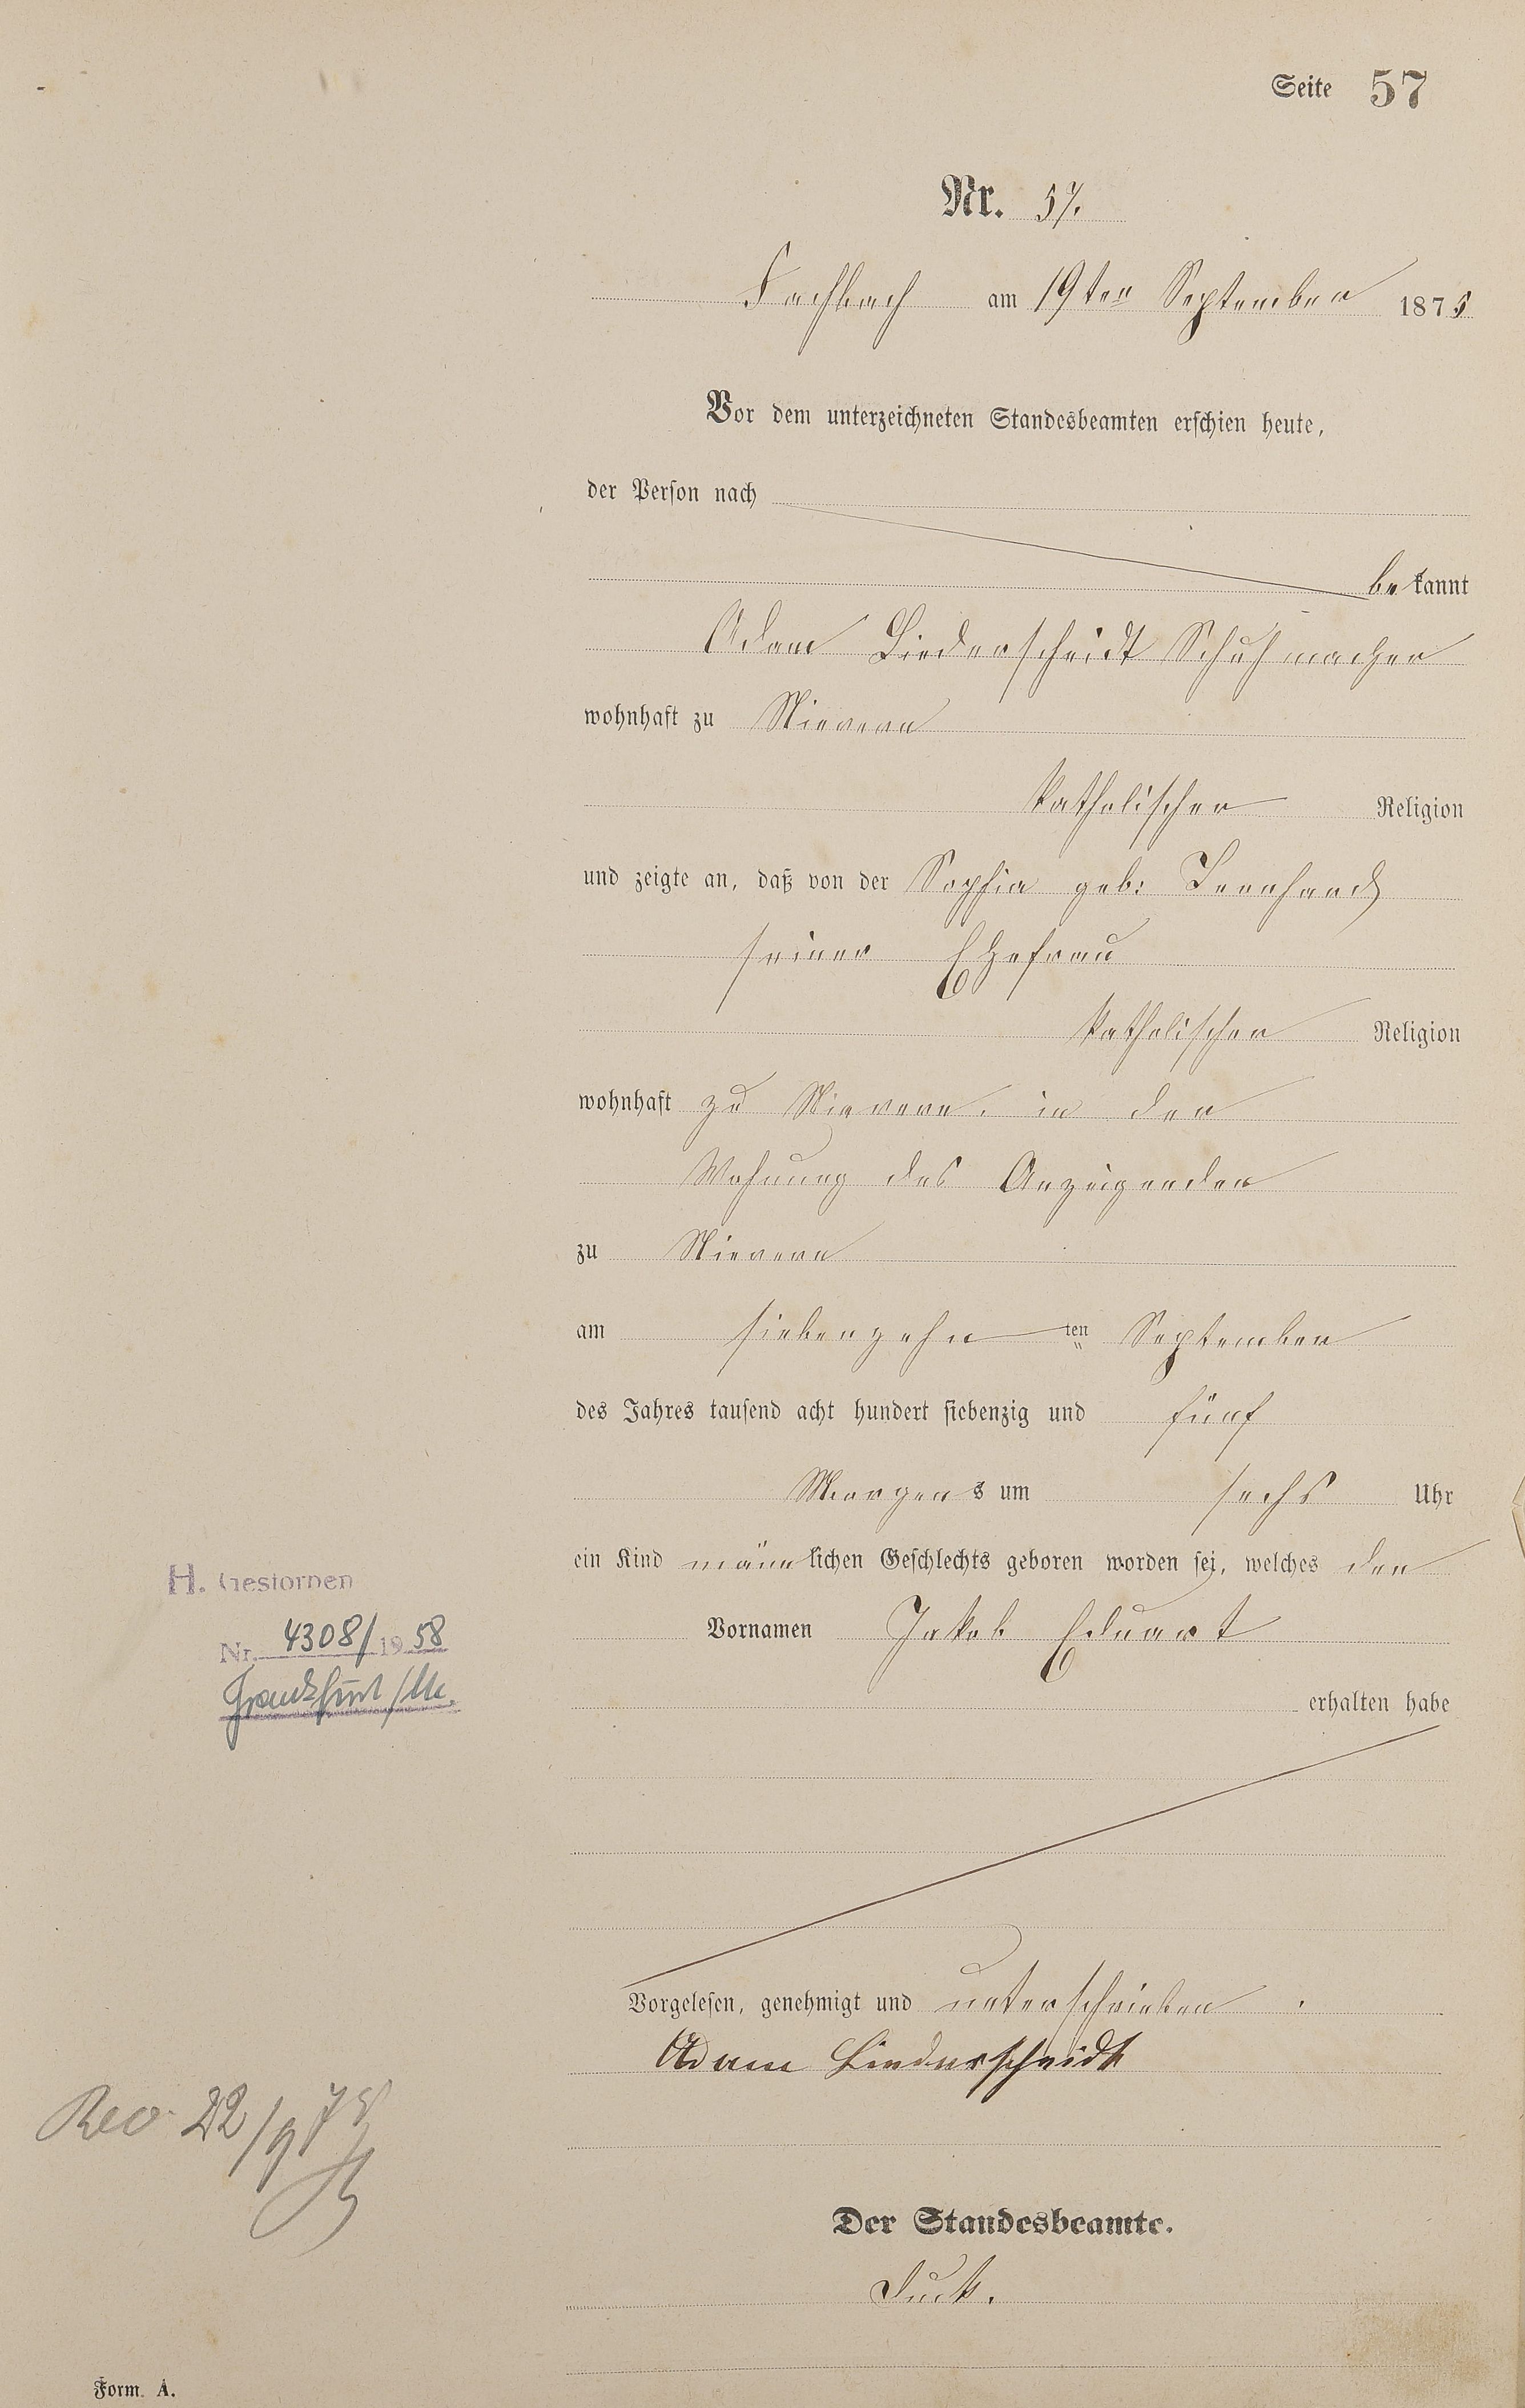 Seite 57
Nr. 57.
Fachbach am 19ten September 1875
Vor dem unterzeichneten Standesbeamten erschien heute,
der Person nach
bekannt
Adam Liederscheidt Schuhmacher
wohnhaft zu Nievern
Katholischer Religion
und zeigte an, daß von der Sophia geb:
seiner Ehefrau
Katholischer Religion
wohnhaft zu Nievern, in der
Wohnung des Anzeigenden
zu Nievern
am siebenzehnten September
des Jahres tausend acht hundert siebenzig und fünf
Morgens um sechs Uhr
ein Kind männlichen Geschlechts geboren worden sei, welches den
Vornamen Jakob Eduart
erhalten habe
H. Gestorben
Nr. 4308/1958
Frankfurt/M.
Vorgelesen, genehmigt und unterschrieben.
Adam Liederscheidt
Rev. 22/9 75
Der Standesbeamte.
Form. A.